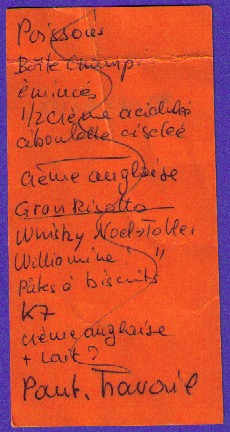 Poissons
Boîte Champ.
émincés
1/2 crème acidulée
ciboulette ciselée
crème anglaise
Gran Risotto
Whisky Noël + Tobler
Williamine " "
Pâtes à biscuits
K7
crème anglaise
+ lait ?
Pant. travail